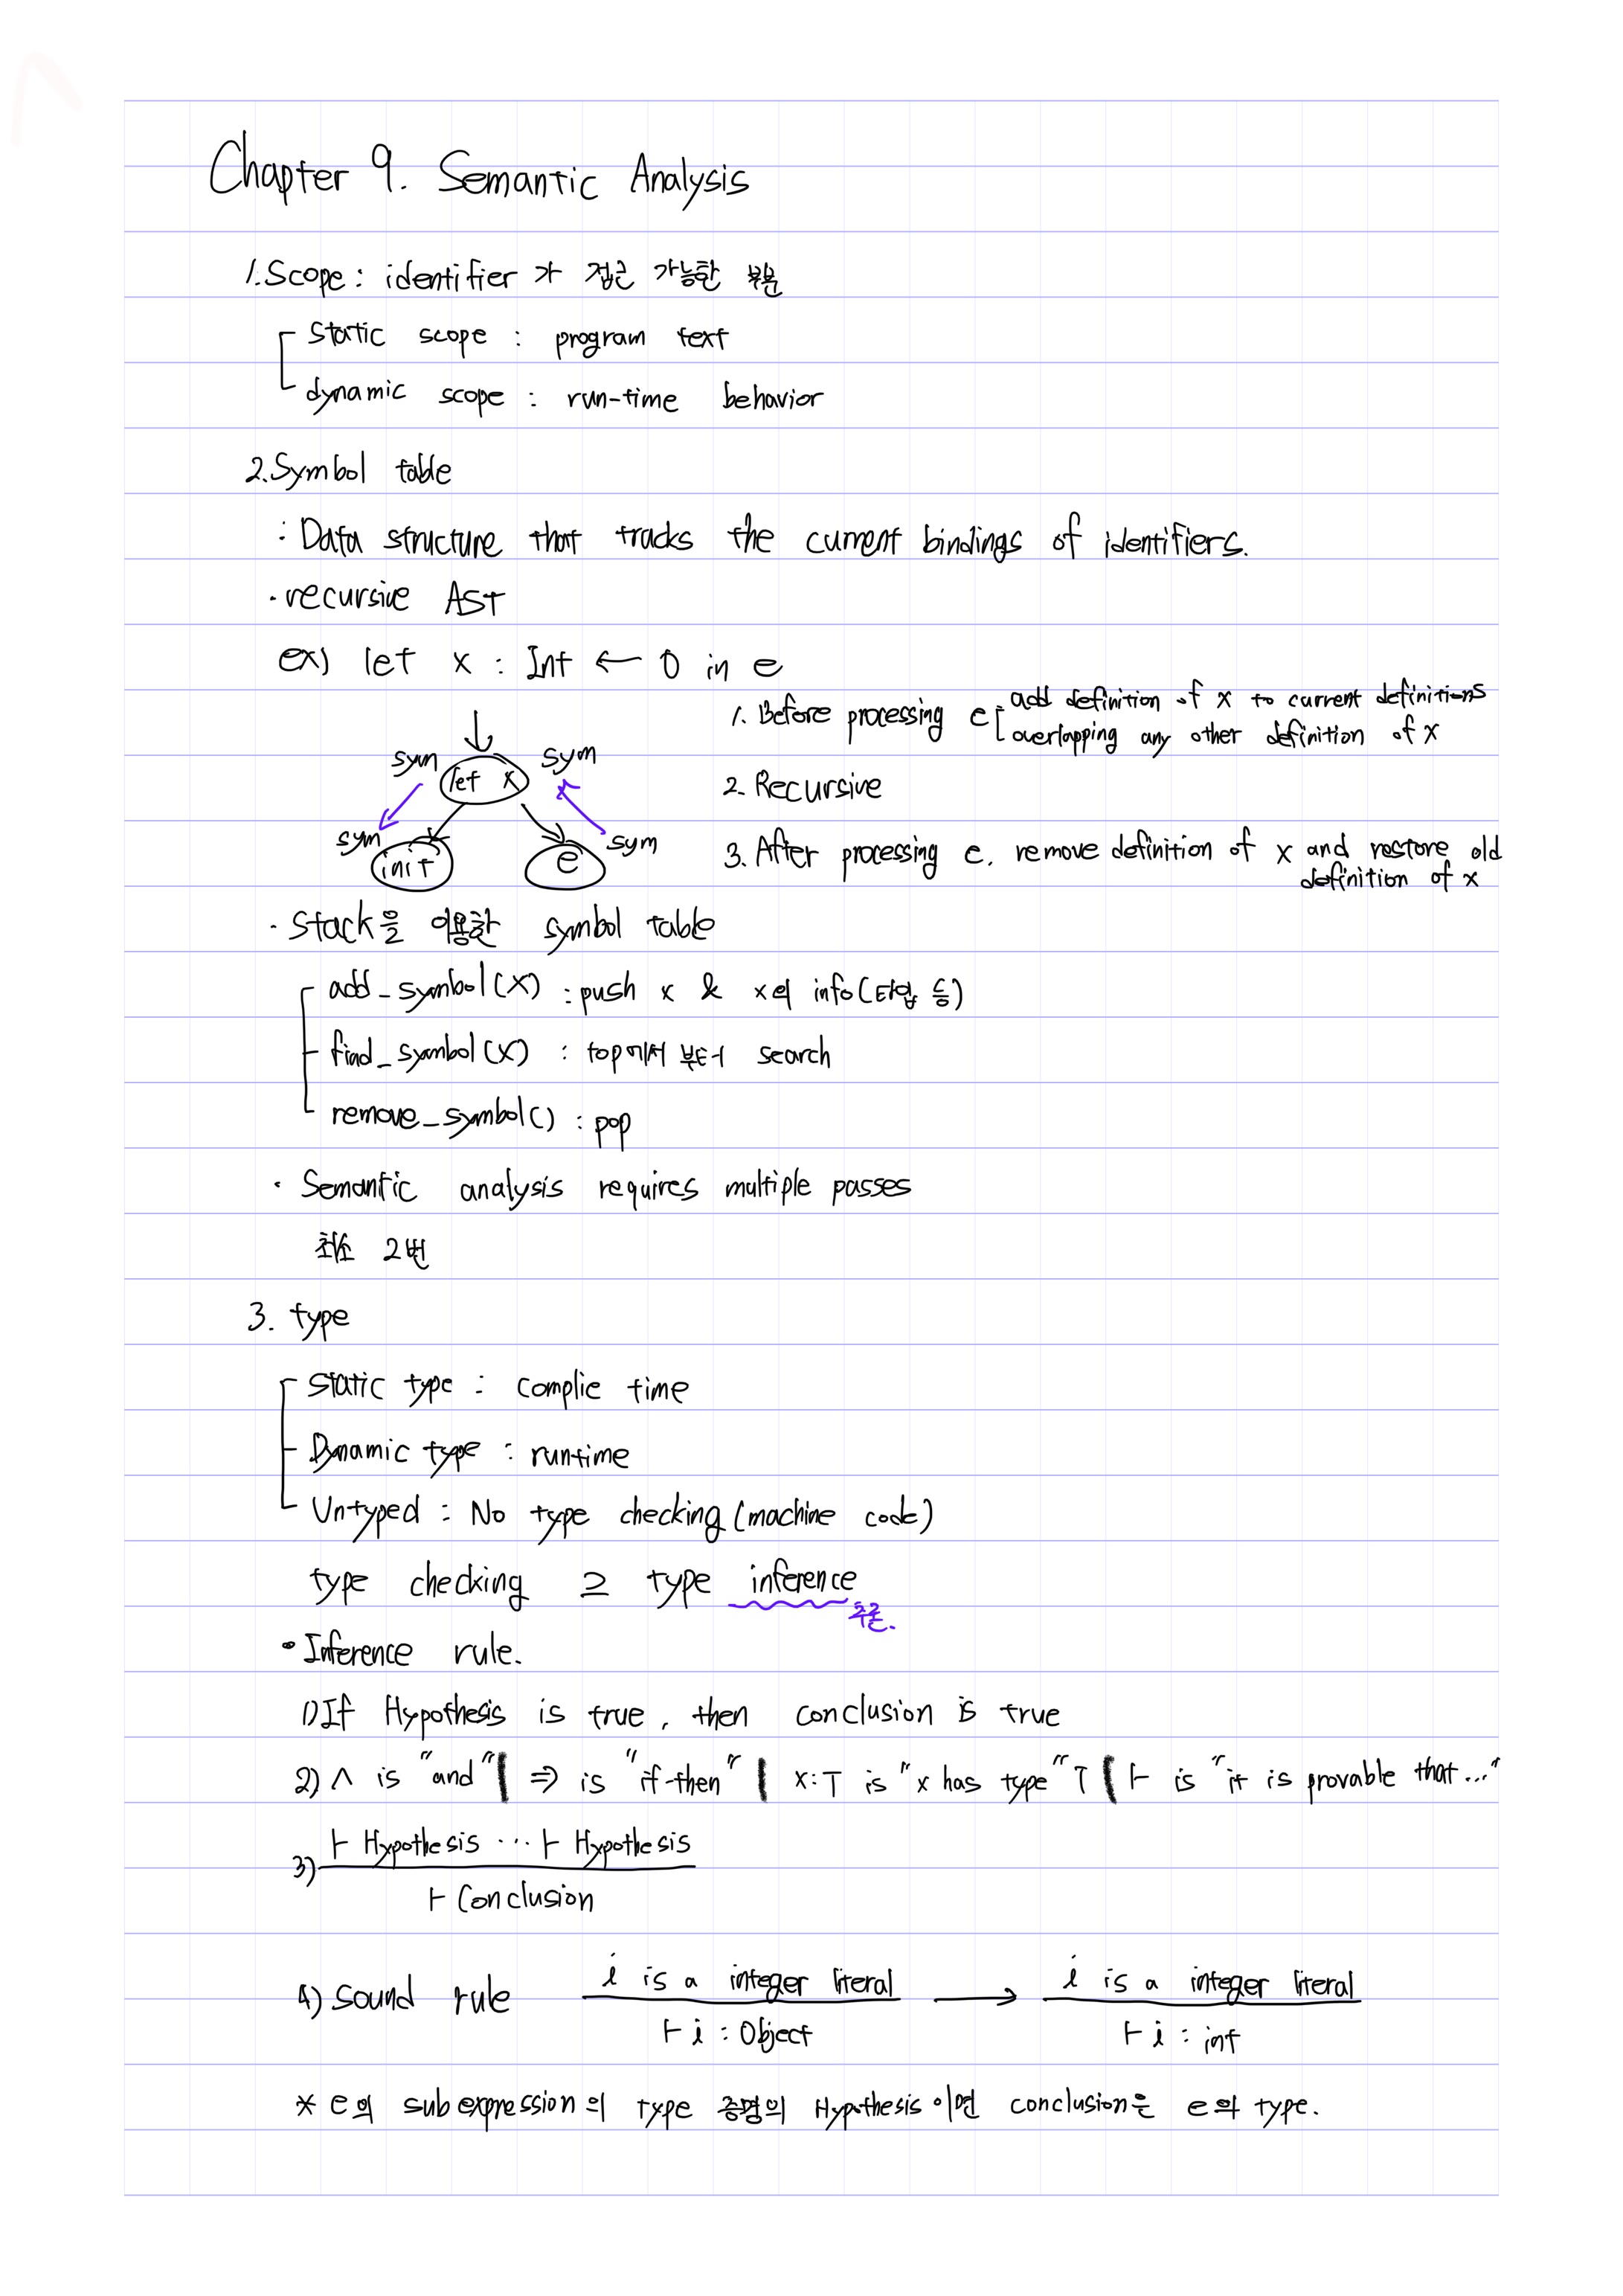 Chapter 9. Semantic Analysis
1. Scope : identifier 가 접근 가능한 부분
static scope : program text
dynamic scope : run-time behavior
2. Symbol table
: Data structure that tracks the current bindings of identifiers.
· recursive AST
ex) let x : Int ← 0 in e
1. Before processing e [ add definition of x to current definitions
overlapping any other definition of x
sym let x sym
2. Recursive
sym init e sym
3. After processing e. remove definition of x and restore old
definition of x
· Stack을 이용한 symbol table
add_symbol(x) : push x & x의 info(타입 등)
find_symbol(x) : top에서 부터 search
remove_symbol() : pop
· Semantic analysis requires multiple passes
최소 2번
3. type
static type : complie time
Dynamic type : runtime
Untyped : No type checking (machine code)
type checking ⊇ type inference
추론.
• Inference rule.
1) If Hypothesis is true, then conclusion is true
2) ∧ is "and" | ⇒ is "if-then" | x:T is "x has type" T | ⊢ is "it is provable that..."
3) ⊢ Hypothesis ... ⊢ Hypothesis
⊢ Conclusion
4) sound rule i is a integer literal → i is a integer literal
⊢ i : Object ⊢ i : int
* e의 subexpression의 type 증명의 Hypothesis 이면 conclusion은 e의 type.